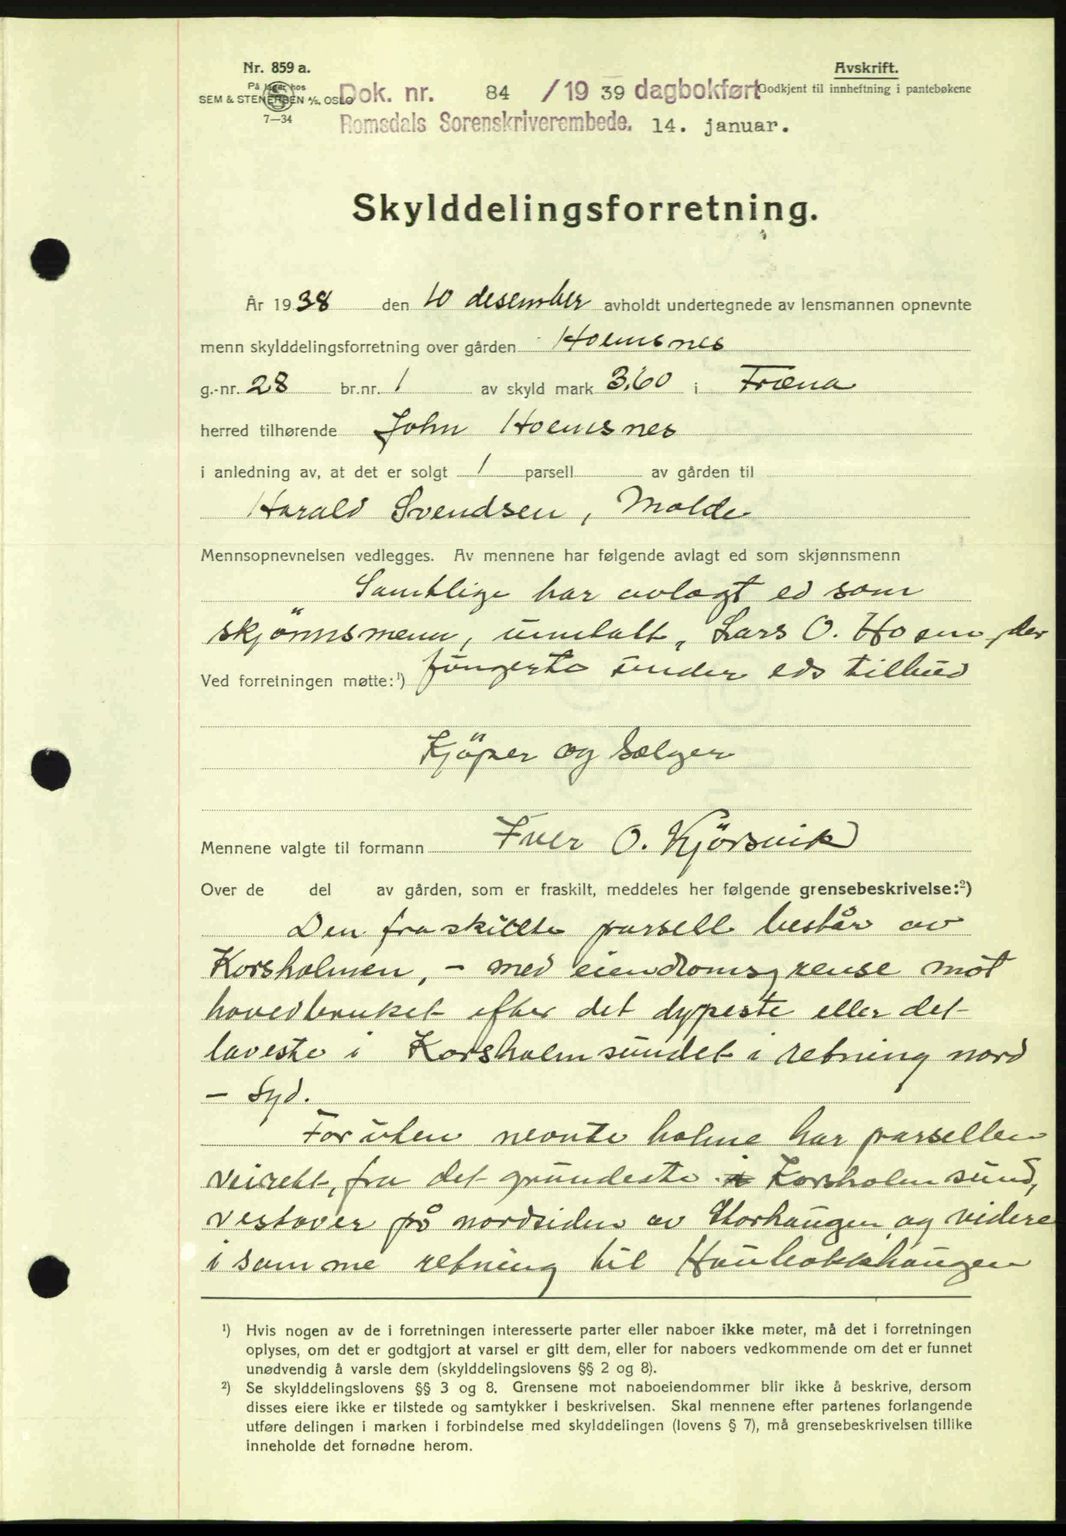 Nr. 859 a.
På lager hos
SEM & STENERSEN A/S, OSLO
7—34
Dok. nr. 84 / 19 39 dagbokført
Romsdals Sorenskriverembede. 14. januar.
Avskrift.
Godkjent til innheftning i pantebøkene
Skylddelingsforretning.
År 1938 den 10 desember avholdt undertegnede av lensmannen opnevnte
menn skylddelingsforretning over gården Hoemsnes
g.-nr. 28 br.nr. 1 av skyld mark 3.60 i Fræna
herred tilhørende John Hoemsnes
i anledning av, at det er solgt 1 parsell av gården til
Harald Svendsen, Molde
Mennsopnevnelsen vedlegges. Av mennene har følgende avlagt ed som skjønnsmenn
Samtlige har avlagt ed som
skjönnsmenn, unntatt, Lars O. Hoem, der
fungerte under eds tilbud
Ved forretningen møtte:¹)
Kjöper og Selger
Mennene valgte til formann Iver O. Kjörsvik
Over de del av gården, som er fraskilt, meddeles her følgende grensebeskrivelse:²)
Den fraskillte parsell består av
Korsholmen, - med eiendomsgrense mot
hovedbruket efter det dypeste eller det
laveste i Korsholmsundet i retning nord
- syd.
Foruten nevnte holme har parsellen
veirett, fra det grundeste i Korsholmsund,
vestover på nordsiden av Storhaugen og videre
i samme retning til
¹) Hvis nogen av de i forretningen interesserte parter eller naboer ikke møter, må det i forretningen
oplyses, om det er godtgjort at varsel er gitt dem, eller for naboers vedkommende om det er funnet
unødvendig å varsle dem (skylddelingslovens §§ 2 og 8).
²) Se skylddelingslovens §§ 3 og 8. Grensene mot naboeiendommer blir ikke å beskrive, dersom
disses eiere ikke er tilstede og samtykker i beskrivelsen. Skal mennene efter partenes forlangende
utføre delingen i marken i forbindelse med skylddelingen (lovens § 7), må grensebeskrivelsen tillike
inneholde det fornødne herom.